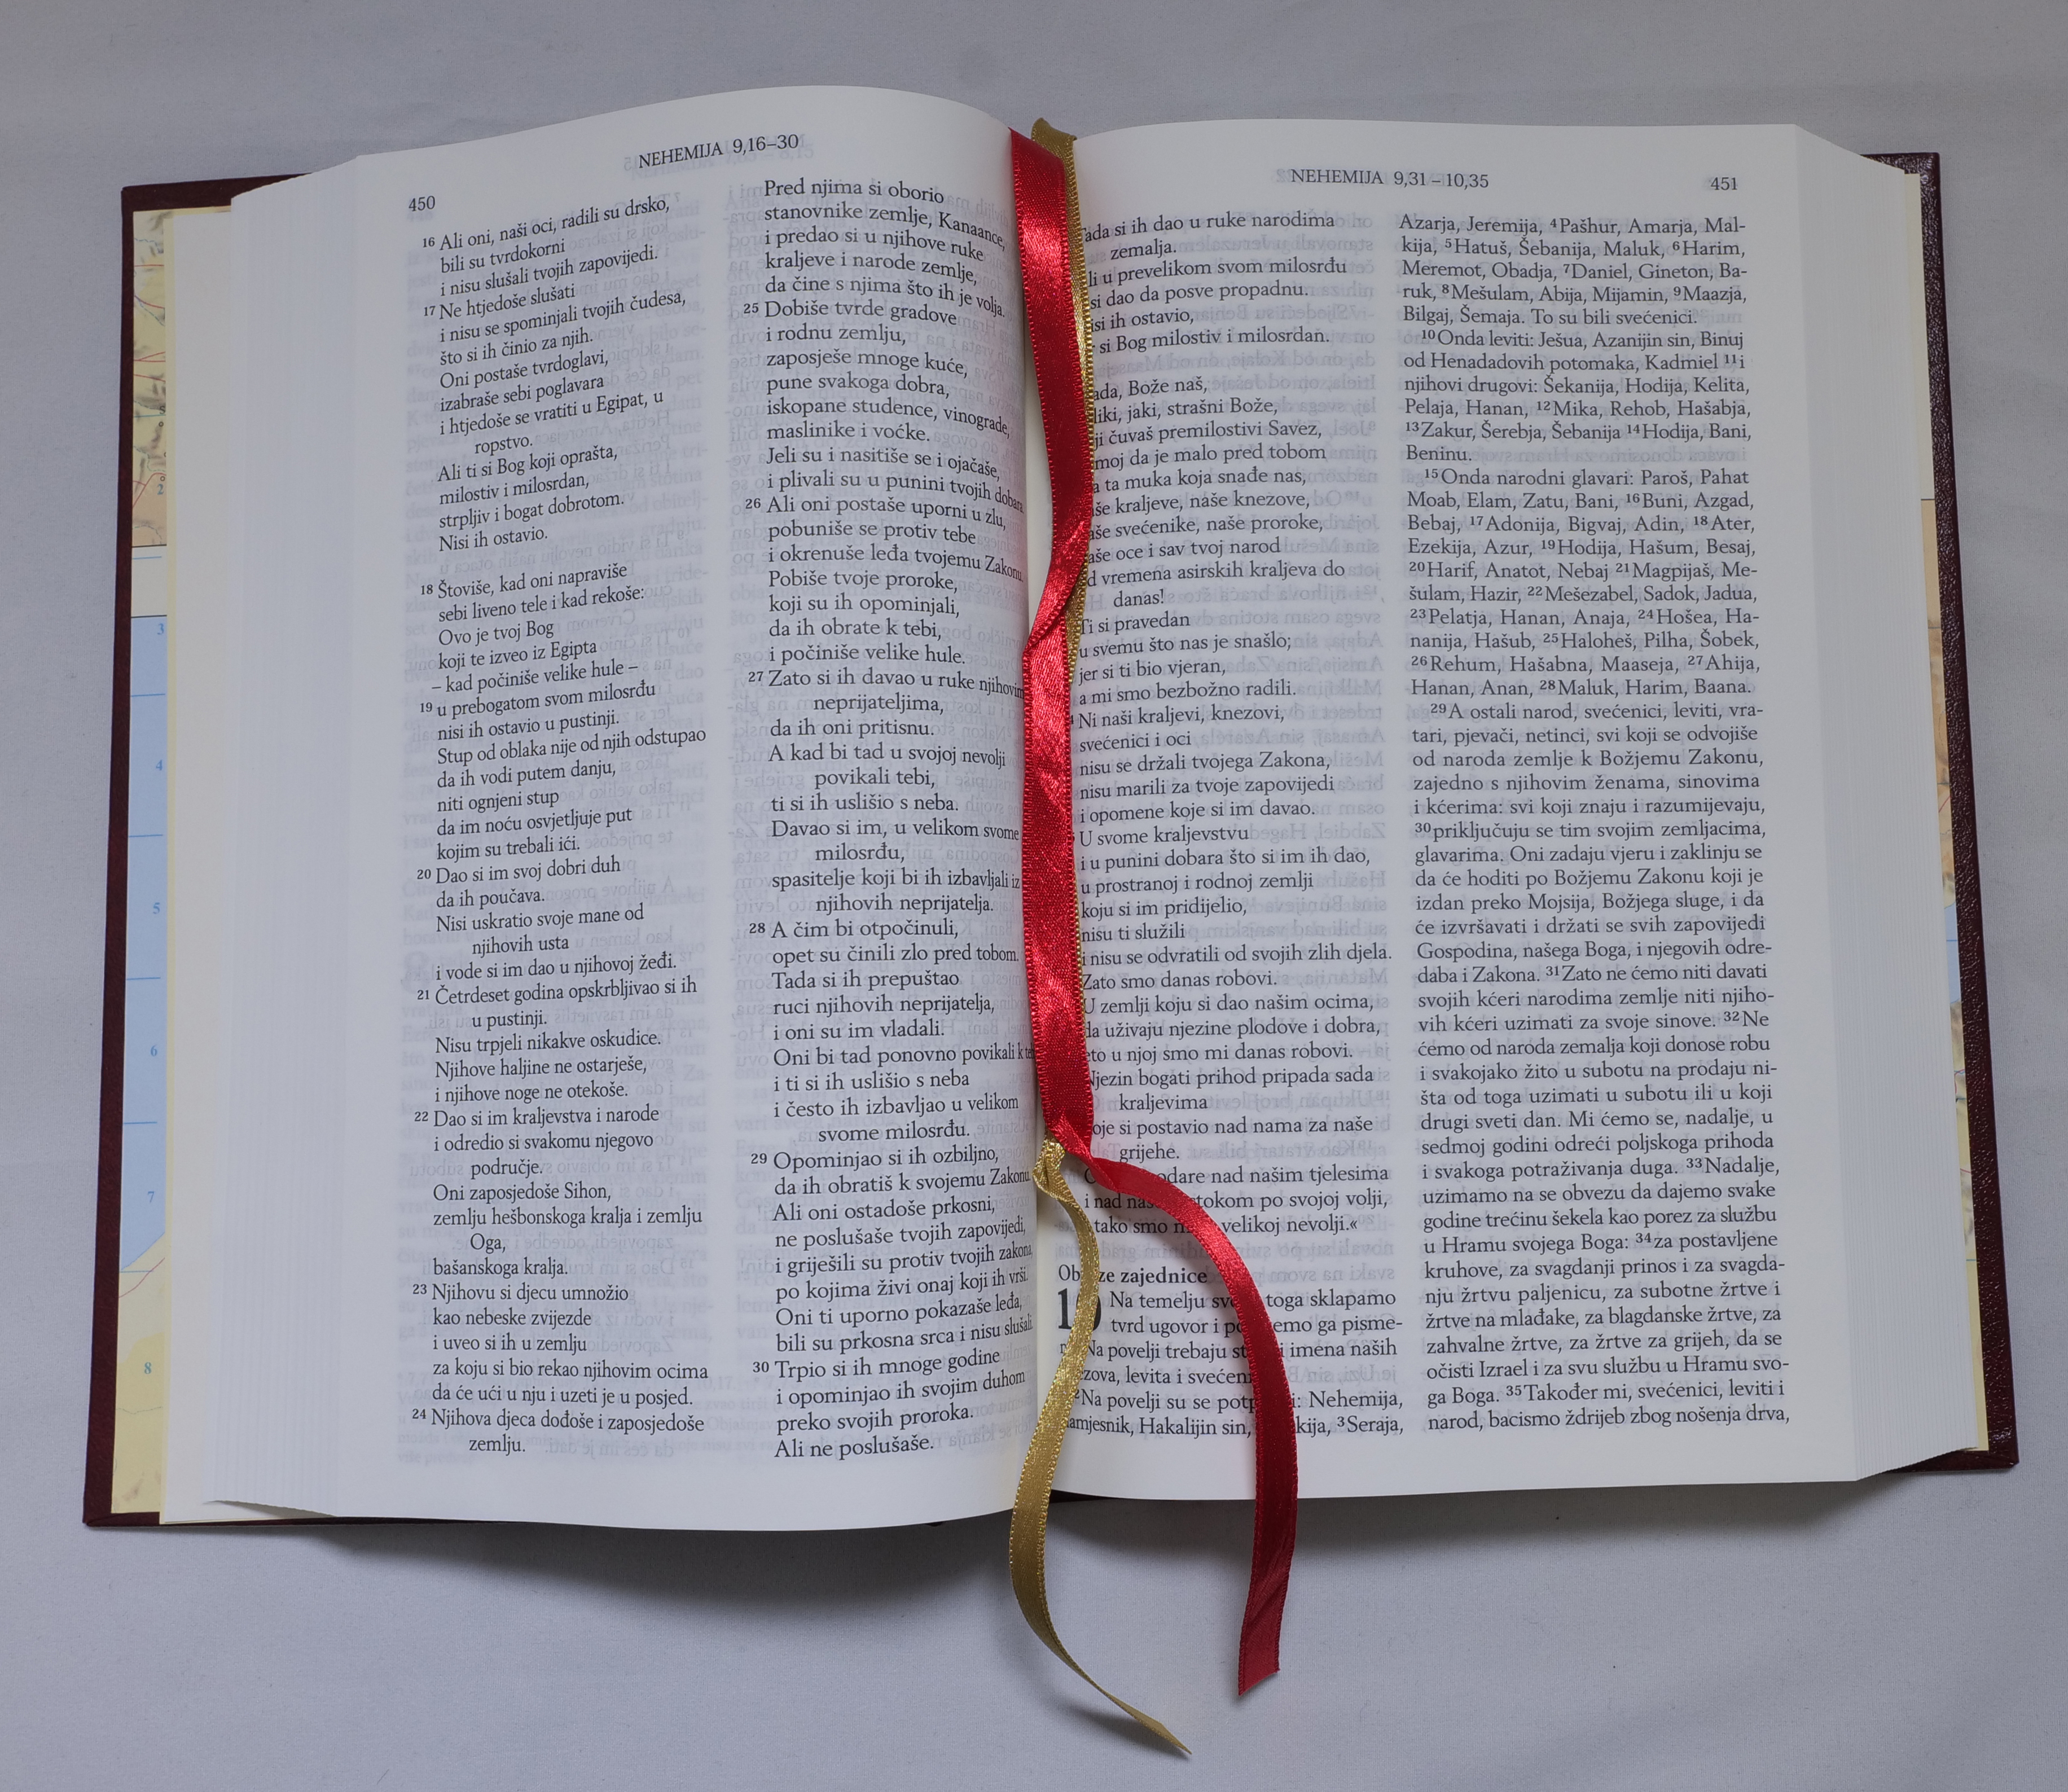 NEHEMIJA 9,16–30
450
16 Ali oni, naši oci, radili su drsko,
bili su tvrdokorni
i nisu slušali tvojih zapovijedi.
17 Ne htjedoše slušati
i nisu se spominjali tvojih čudesa,
što si ih činio za njih.
Oni postaše tvrdoglavi,
izabraše sebi poglavara
i htjedoše se vratiti u Egipat, u
ropstvo.
Ali ti si Bog koji oprašta,
milostiv i milosrdan,
strpljiv i bogat dobrotom.
Nisi ih ostavio.
18 Štoviše, kad oni napraviše
sebi liveno tele i kad rekoše:
Ovo je tvoj Bog
koji te izveo iz Egipta
– kad počiniše velike hule –
19 u prebogatom svom milosrđu
nisi ih ostavio u pustinji.
Stup od oblaka nije od njih odstupao
da ih vodi putem danju,
niti ognjeni stup
da im noću osvjetljuje put
kojim su trebali ići.
20 Dao si im svoj dobri duh
da ih poučava.
Nisi uskratio svoje mane od
njihovih usta
i vode si im dao u njihovoj žeđi.
21 Četrdeset godina opskrbljivao si ih
u pustinji.
Nisu trpjeli nikakve oskudice.
Njihove haljine ne ostarješe,
i njihove noge ne otekoše.
22 Dao si im kraljevstva i narode
i odredio si svakomu njegovo
područje.
Oni zaposjedoše Sihon,
zemlju hešbonskoga kralja i zemlju
Oga,
bašanskoga kralja.
23 Njihovu si djecu umnožio
kao nebeske zvijezde
i uveo si ih u zemlju
za koju si bio rekao njihovim ocima
da će ući u nju i uzeti je u posjed.
24 Njihova djeca dođoše i zaposjedoše
zemlju.
Pred njima si oborio
stanovnike zemlje, Kanaance,
i predao si u njihove ruke
kraljeve i narode zemlje,
da čine s njima što ih je volja.
25 Dobiše tvrde gradove
i rodnu zemlju,
zaposješe mnoge kuće,
pune svakoga dobra,
iskopane studence, vinograde,
maslinike i voćke.
Jeli su i nasitiše se i ojačaše,
i plivali su u punini tvojih dobara.
26 Ali oni postaše uporni u zlu,
pobuniše se protiv tebe
i okrenuše leđa tvojemu Zakonu.
Pobiše tvoje proroke,
koji su ih opominjali,
da ih obrate k tebi,
i počiniše velike hule.
27 Zato si ih davao u ruke njihovim
neprijateljima,
da ih oni pritisnu.
A kad bi tad u svojoj nevolji
povikali tebi,
ti si ih uslišio s neba.
Davao si im, u velikom svome
milosrđu,
spasitelje koji bi ih izbavljali iz
njihovih neprijatelja.
28 A čim bi otpočinuli,
opet su činili zlo pred tobom.
Tada si ih prepuštao
ruci njihovih neprijatelja,
i oni su im vladali.
Oni bi tad ponovno povikali k
i ti si ih uslišio s neba
i često ih izbavljao u velikom
svome milosrđu.
29 Opominjao si ih ozbiljno,
da ih obratiš k svojemu Zakonu.
Ali oni ostadoše prkosni,
ne poslušaše tvojih zapovijedi,
i griješili su protiv tvojih zakona,
po kojima živi onaj koji ih vrši.
Oni ti uporno pokazaše leđa,
bili su prkosna srca i nisu slušali.
30 Trpio si ih mnoge godine
i opominjao ih svojim duhom
preko svojih proroka.
Ali ne poslušaše.
NEHEMIJA 9,31 – 10,35
451
Tada si ih dao u ruke narodima
zemalja.
u prevelikom svom milosrđu
si dao da posve propadnu.
ih ostavio,
si Bog milostiv i milosrdan.
Bože naš,
jaki, strašni Bože,
čuvaš premilostivi Savez,
da je malo pred tobom
ta muka koja snađe nas,
kraljeve, naše knezove,
svećenike, naše proroke,
oce i sav tvoj narod
vremena asirskih kraljeva do
danas!
Ti si pravedan
u svemu što nas je snašlo;
jer si ti bio vjeran,
a mi smo bezbožno radili.
Ni naši kraljevi, knezovi,
svećenici i oci
nisu se držali tvojega Zakona,
nisu marili za tvoje zapovijedi
i opomene koje si im davao.
U svome kraljevstvu
i u punini dobara što si im ih dao,
u prostranoj i rodnoj zemlji
koju si im pridijelio,
nisu ti služili
i nisu se odvratili od svojih zlih djela.
Zato smo danas robovi.
U zemlji koju si dao našim ocima,
da uživaju njezine plodove i dobra,
eto u njoj smo mi danas robovi.
Njezin bogati prihod pripada sada
kraljevima
koje si postavio nad nama za naše
grijehe.
nad našim tjelesima
i nad po svojoj volji,
tako smo velikoj nevolji.«
zajednice
10 Na temelju toga sklapamo
tvrd ugovor i ga pisme-
Na povelji trebaju imena naših
levita i
2Na povelji su se Nehemija,
Hakalijin sin, 3Seraja,
Azarja, Jeremija, 4Pašhur, Amarja, Mal-
kija, 5Hatuš, Šebanija, Maluk, 6Harim,
Meremot, Obadja, 7Daniel, Gineton, Ba-
ruk, 8Mešulam, Abija, Mijamin, 9Maazja,
Bilgaj, Šemaja. To su bili svećenici.
10Onda leviti: Ješua, Azanijin sin, Binuj
od Henadadovih potomaka, Kadmiel 11i
njihovi drugovi: Šekanija, Hodija, Kelita,
Pelaja, Hanan, 12Mika, Rehob, Hašabja,
13Zakur, Šerebja, Šebanija 14Hodija, Bani,
Beninu.
15Onda narodni glavari: Paroš, Pahat
Moab, Elam, Zatu, Bani, 16Buni, Azgad,
Bebaj, 17Adonija, Bigvaj, Adin, 18Ater,
Ezekija, Azur, 19Hodija, Hašum, Besaj,
20Harif, Anatot, Nebaj 21Magpijaš, Me-
šulam, Hazir, 22Mešezabel, Sadok, Jadua,
23Pelatja, Hanan, Anaja, 24Hošea, Ha-
nanija, Hašub, 25Haloheš, Pilha, Šobek,
26Rehum, Hašabna, Maaseja, 27Ahija,
Hanan, Anan, 28Maluk, Harim, Baana.
29A ostali narod, svećenici, leviti, vra-
tari, pjevači, netinci, svi koji se odvojiše
od naroda zemlje k Božjemu Zakonu,
zajedno s njihovim ženama, sinovima
i kćerima: svi koji znaju i razumijevaju,
30priključuju se tim svojim zemljacima,
glavarima. Oni zadaju vjeru i zaklinju se
da će hoditi po Božjemu Zakonu koji je
izdan preko Mojsija, Božjega sluge, i da
će izvršavati i držati se svih zapovijedi
Gospodina, našega Boga, i njegovih odre-
daba i Zakona. 31Zato ne ćemo niti davati
svojih kćeri narodima zemlje niti njiho-
vih kćeri uzimati za svoje sinove. 32Ne
ćemo od naroda zemalja koji donose robu
i svakojako žito u subotu na prodaju ni-
šta od toga uzimati u subotu ili u koji
drugi sveti dan. Mi ćemo se, nadalje, u
sedmoj godini odreći poljskoga prihoda
i svakoga potraživanja duga. 33Nadalje,
uzimamo na se obvezu da dajemo svake
godine trećinu šekela kao porez za službu
u Hramu svojega Boga: 34za postavljene
kruhove, za svagdanji prinos i za svagda-
nju žrtvu paljenicu, za subotne žrtve i
žrtve na mlađake, za blagdanske žrtve, za
zahvalne žrtve, za žrtve za grijeh, da se
očisti Izrael i za svu službu u Hramu svo-
ga Boga. 35Također mi, svećenici, leviti i
narod, bacismo ždrijeb zbog nošenja drva,
2
3
4
5
6
7
8